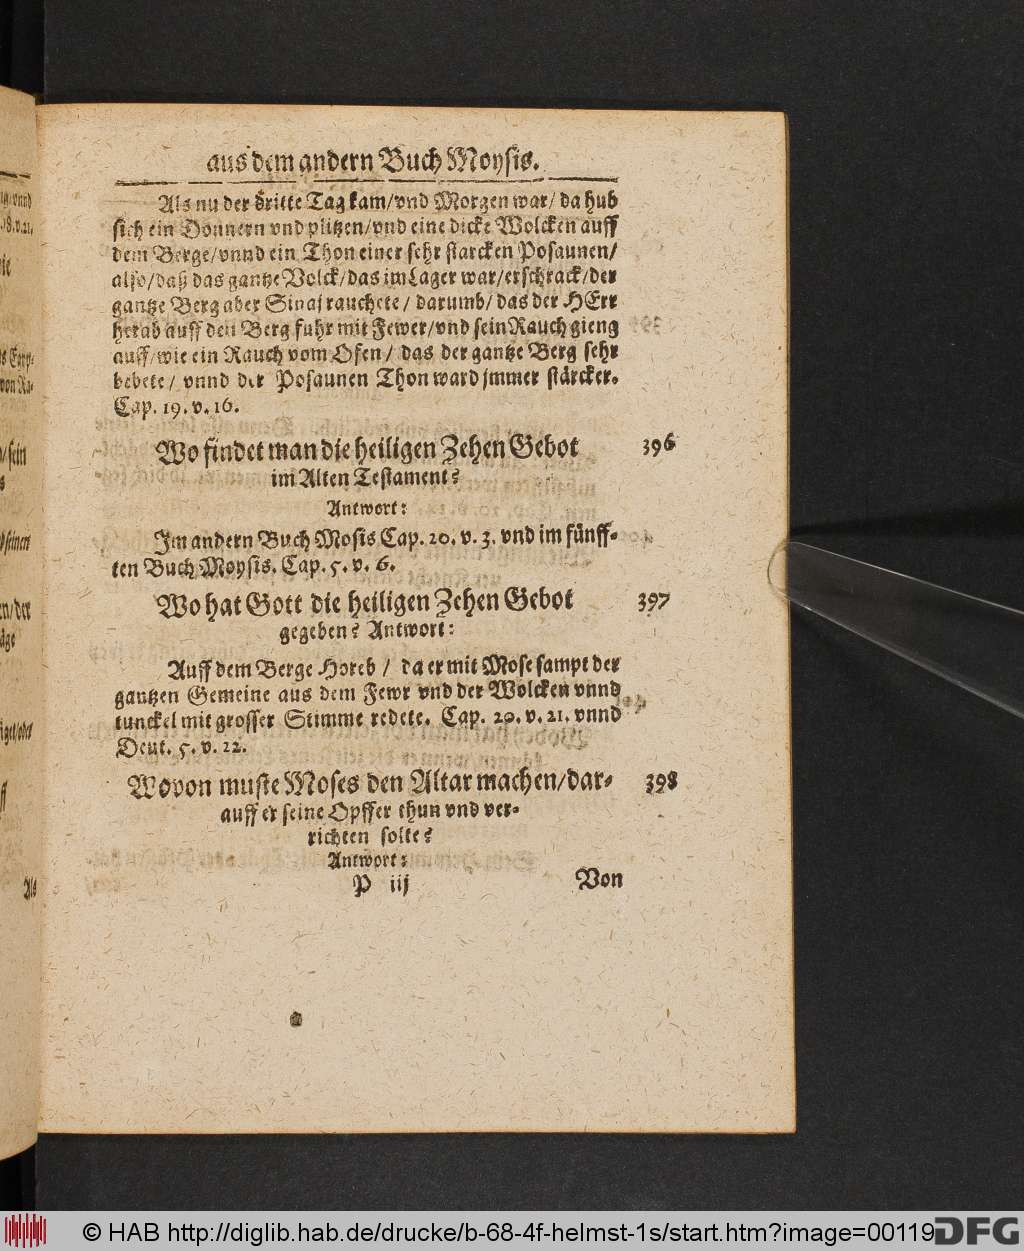 aus dem andern Buch Moysis.
Als nu der dritte Tag kam/vnd Morgen war/ da hub
sich ein Donnern vnd plitzen/vnd eine dicke Wolcken auff
dem Berge/vnnd ein Thon einer sehr starcken Posaunen/
also/daß das gantze Volck/das im Lager war/erschrack/der
gantze Berg aber Sinai rauchete/ darumb/das der HErr
herab auff den Berg fuhr mit Fewer/vnd sein Rauch gieng
auff/wie ein Rauch vom Ofen/ das der gantze Berg sehr
bebete/ vnnd der Posaunen Thon ward jmmer stärcker.
Cap. 19. v. 16.
Wo findet man die heiligen Zehen Gebot 396
im Alten Testament?
Antwort:
Jm andern Buch Mosis Cap. 20. v. 3. vnd im fünff-
ten Buch Moysis. Cap. 5. v. 6.
Wo hat Gott die heiligen Zehen Gebot 397
gegeben? Antwort:
Auff dem Berge Horeb/ da er mit Mose sampt der
gantzen Gemeine aus dem Fewr vnd der Wolcken vnnd
tunckel mit grosser Stimme redete. Cap. 20. v. 21. vnnd
Deut. 5. v. 22.
Wovon muste Moses den Altar machen/dar- 398
auff er seine Opffer thun vnd ver-
richten solte?
Antwort:
P iij Von
© HAB http://diglib.hab.de/drucke/b-68-4f-helmst-1s/start.htm?image=00119
DFG